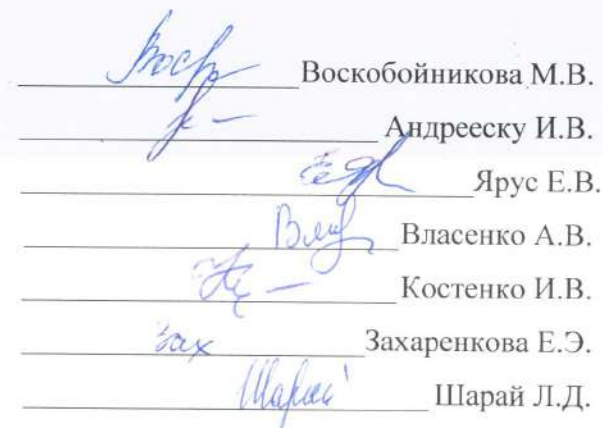 Воскобойникова М.В.
Андрееску И.В.
Ярус Е.В.
Власенко А.В.
Костенко И.В.
Зах Захаренкова Е.Э.
Шарай Шарай Л.Д.